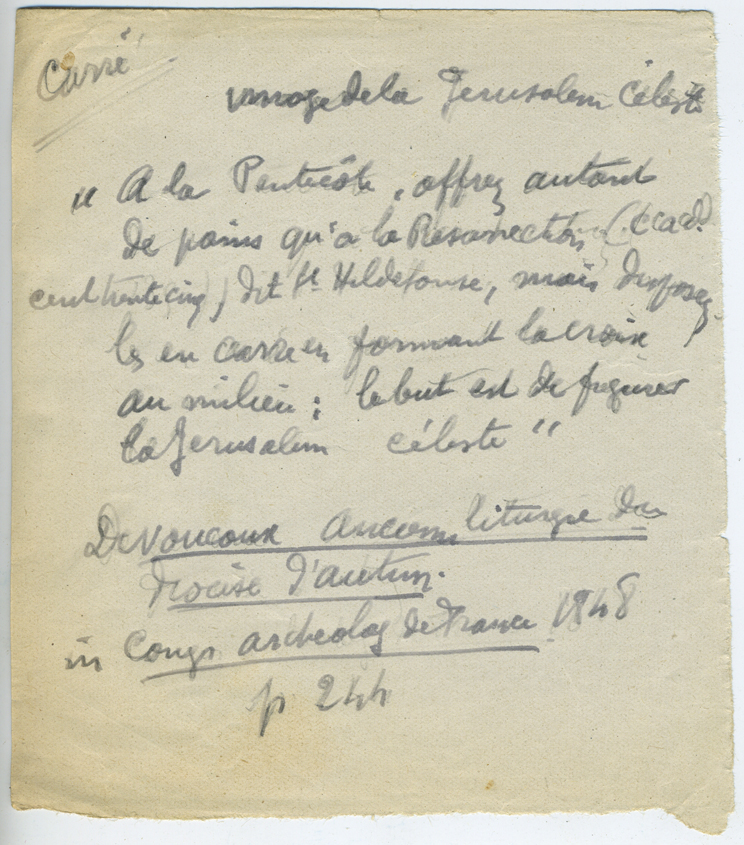 Carré
image de la Jerusalem Céleste
" A la Pentecôte, offrez autant
de pains qu'a la Resurrection (c.a.d.
cent trente cinq) dit St Hildefonse, mais disposez
les en carré en formant la croix
au milieu : le but est de figurer
la Jerusalem céleste "
Devoucoux ancienne liturgie du
diocèse d'autun.
in Congr archeolog de France 1848
p 244